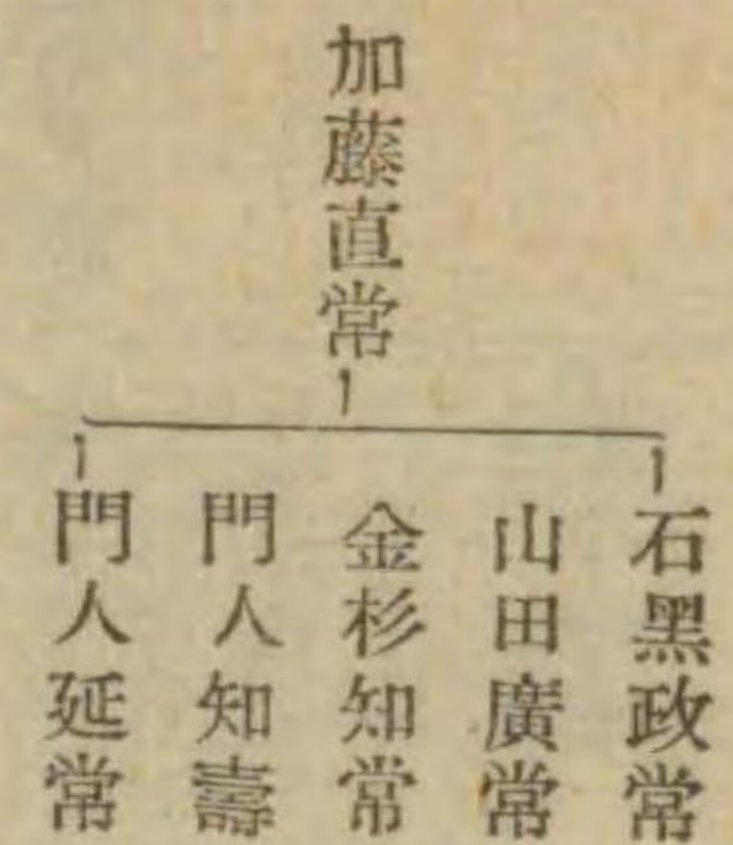 加藤直常
石黑政常
山田廣常
金杉知常
門人知壽
門人延常